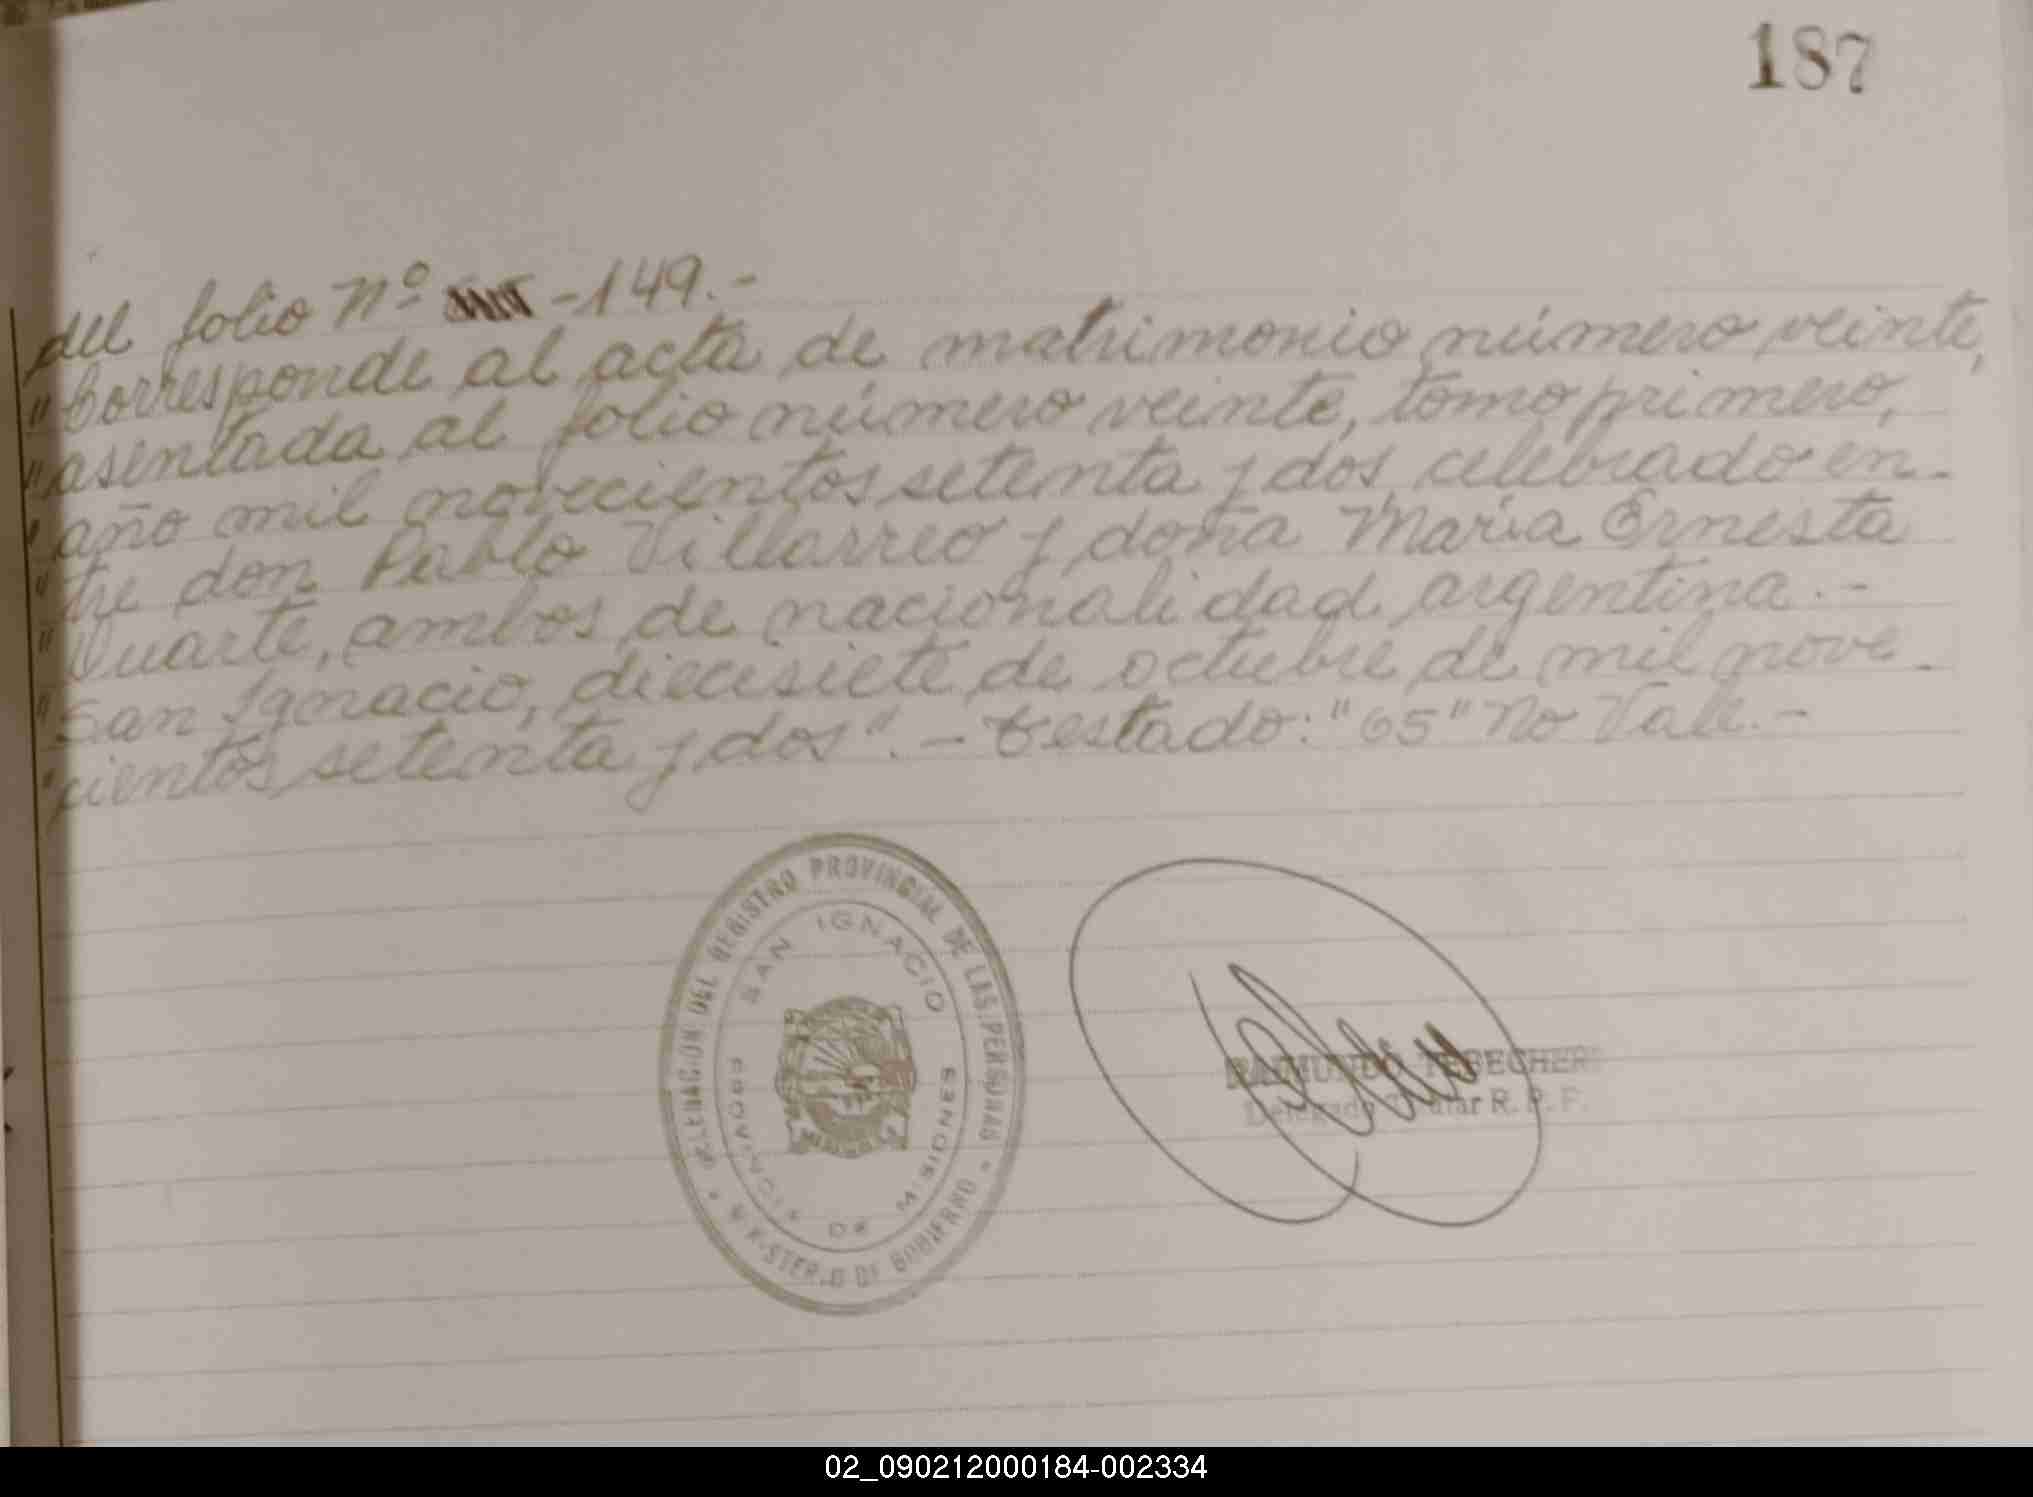 187
del folio Nº -149.-
"Corresponde al acta de matrimonio número veinte,
"asentada al folio número veinte, tomo primero,
"año mil novecientos setenta y dos celebrado en-
"tre don Pablo Villarreo y doña María Ernesta
"Duarte, ambos de nacionalidad argentina.-
"San Ignacio, diecisiete de octubre de mil nove-
"cientos setenta y dos".- Testado: "65" No Vale.-
DELEGACION DEL REGISTRO PROVINCIAL DE LAS PERSONAS
SAN IGNACIO
PROVINCIA DE MISIONES
MINISTERIO DE GOBIERNO
RAIMUNDO TEBECHERI
Delegado Titular R. P. P.
02_090212000184-002334